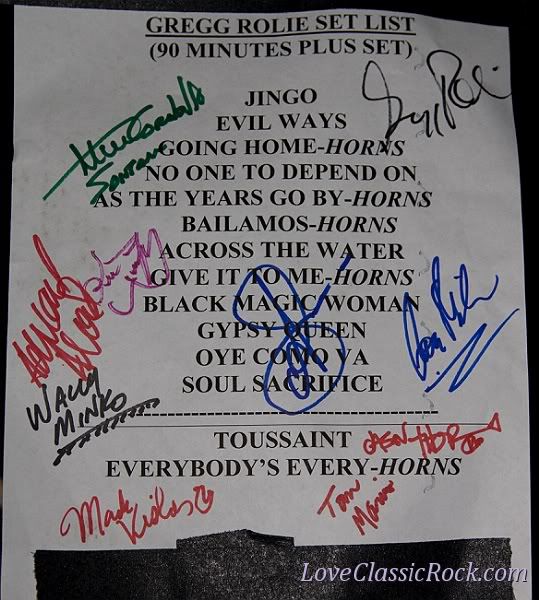 GREGG ROLIE SET LIST
(90 MINUTES PLUS SET)
JINGO
EVIL WAYS
GOING HOME-HORNS
NO ONE TO DEPEND ON
AS THE YEARS GO BY-HORNS
BAILAMOS-HORNS
ACROSS THE WATER
GIVE IT TO ME-HORNS
BLACK MAGIC WOMAN
GYPSY QUEEN
OYE COMO VA
SOUL SACRIFICE
WALLY
MINKO
TOUSSAINT
EVERYBODY'S EVERY-HORNS
Tom
Mark
LoveClassicRock.com